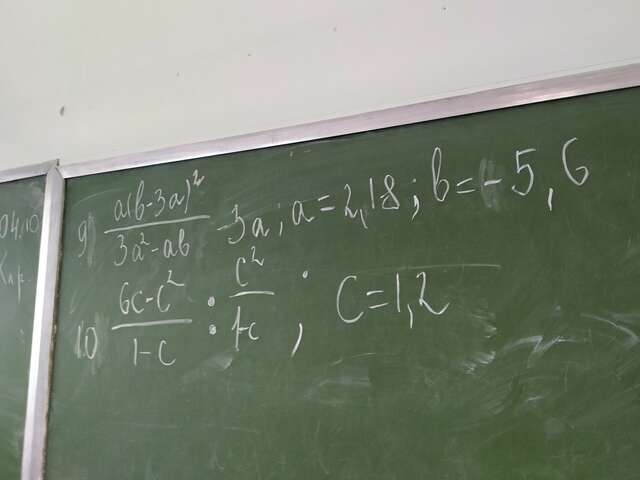 04.10
К.р.
9) a(b-3a)²/3a²-ab - 3a; a=2,18; b=-5,6
10) 6c-c²/1-c : c²/1-c; c=1,2